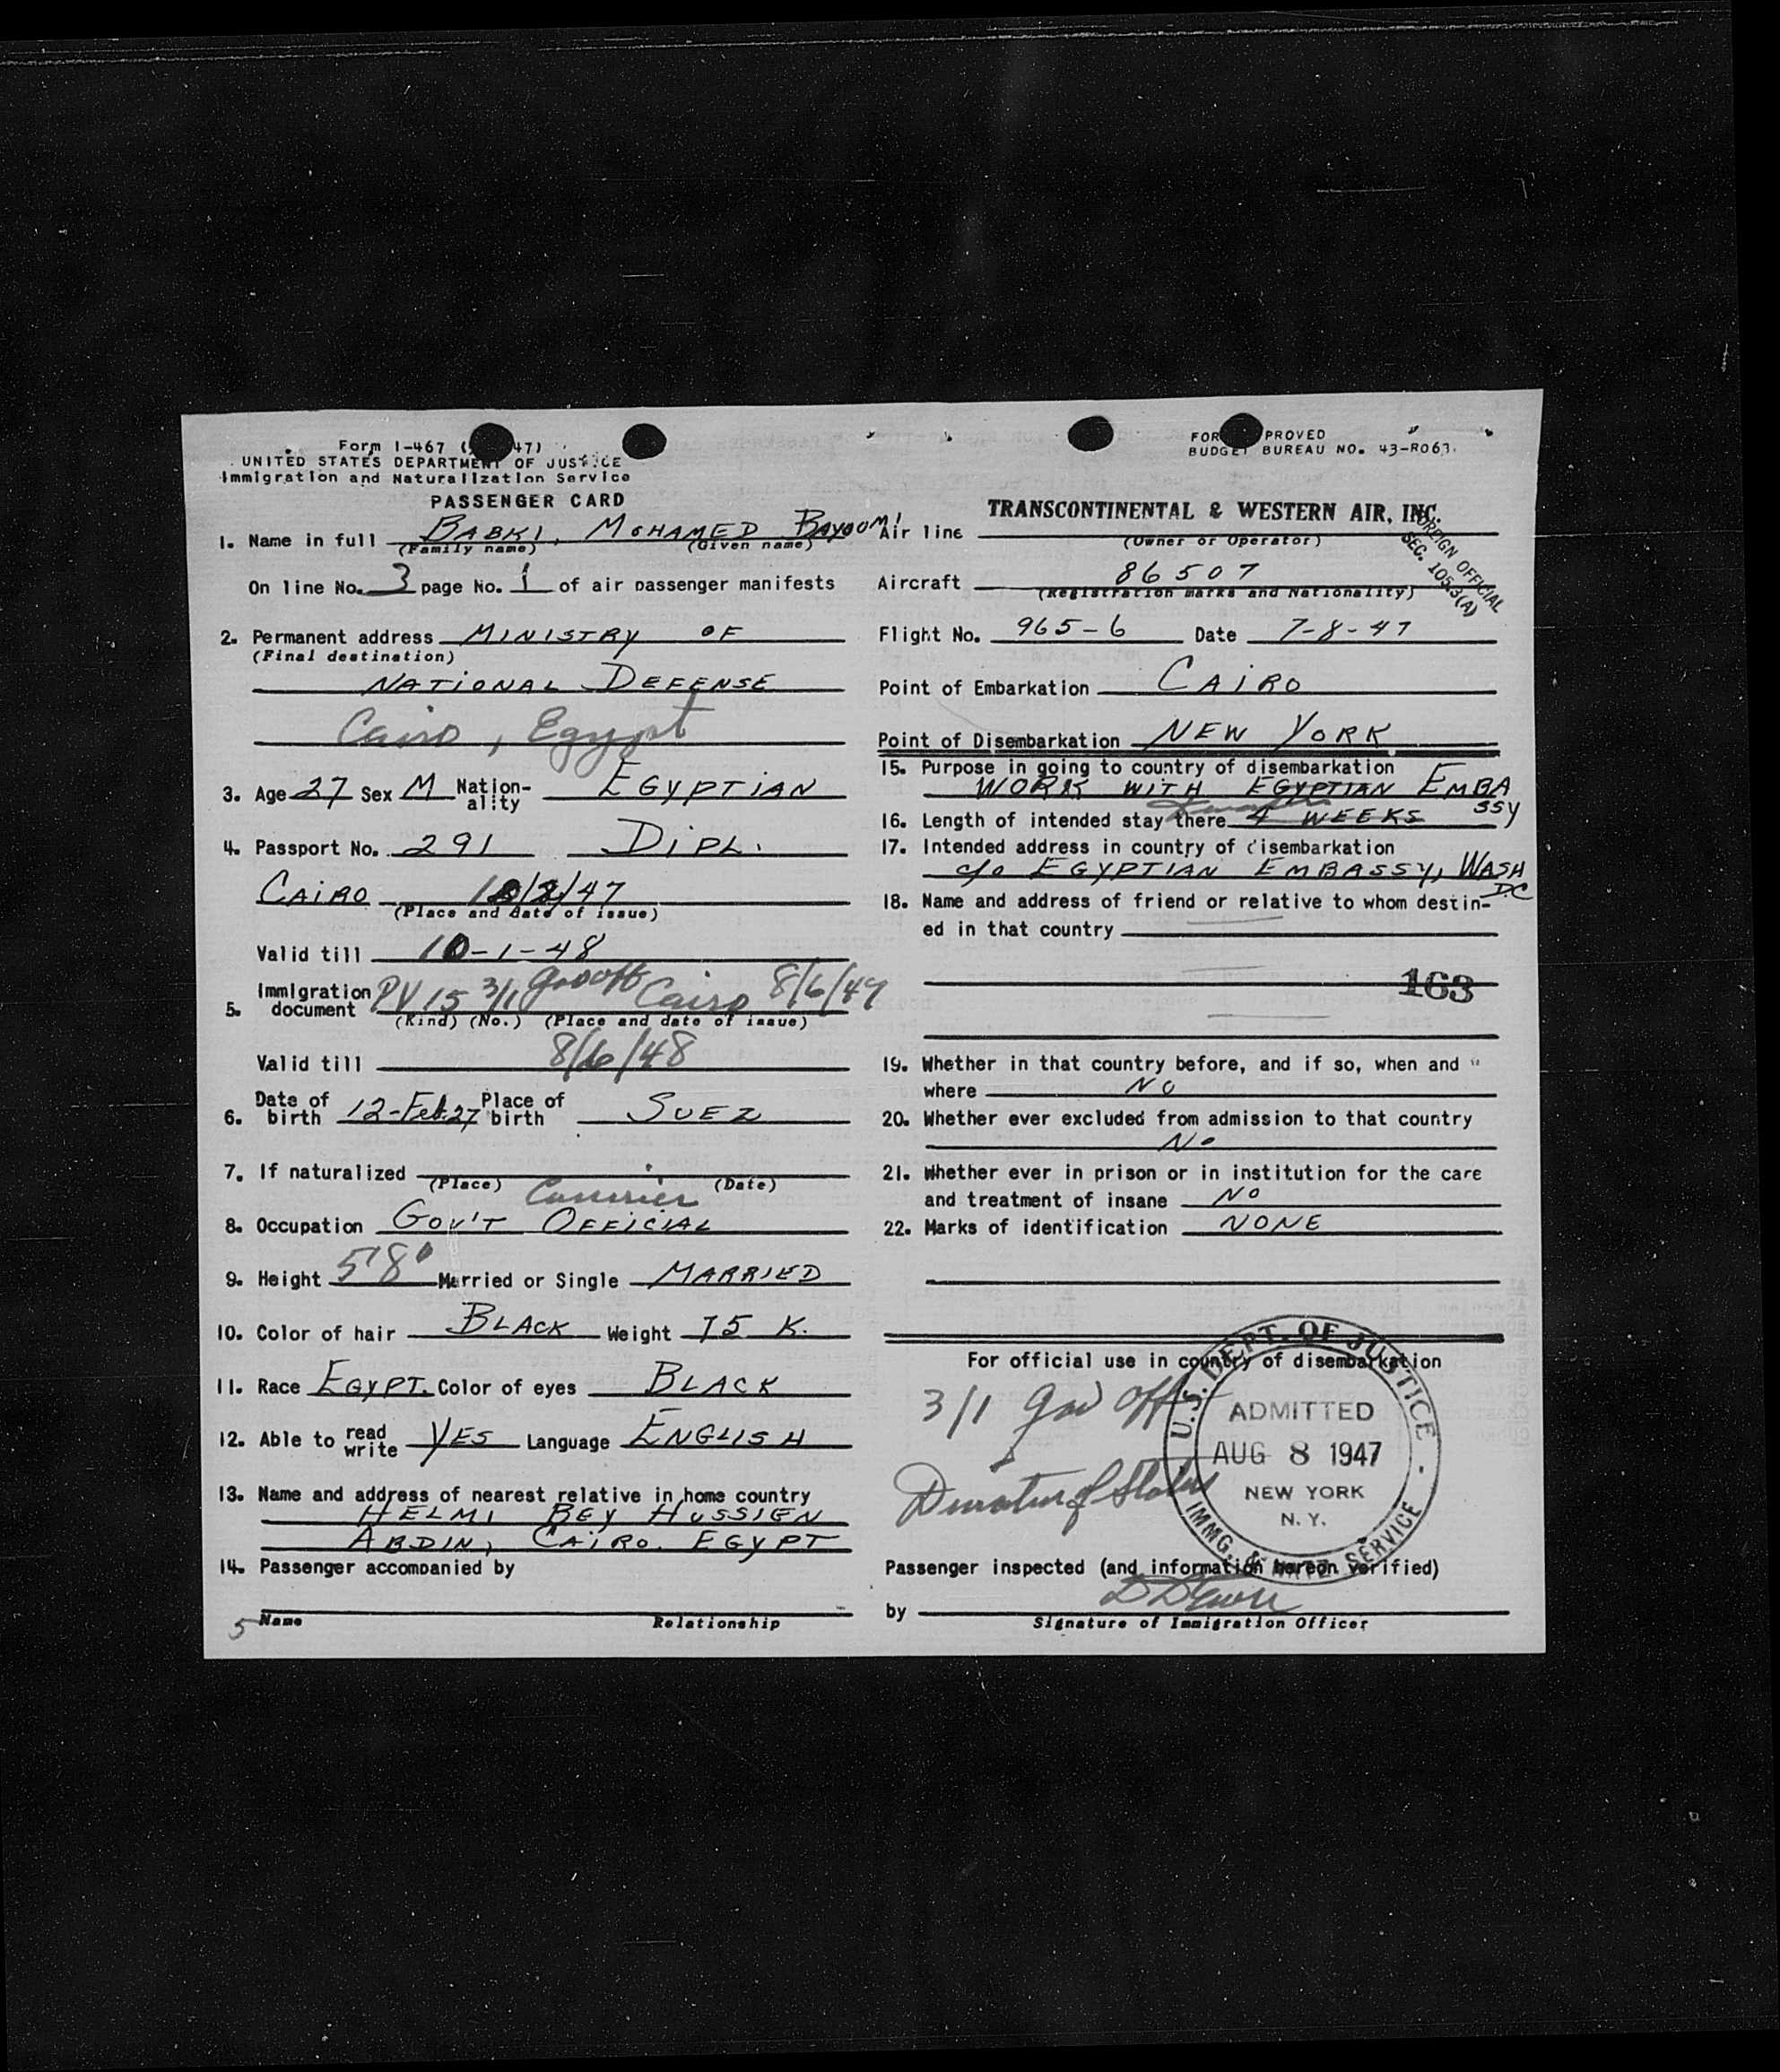 Form I-467 ( 47)
UNITED STATES DEPARTMENT OF JUSTICE
Immigration and Naturalization Service
PASSENGER CARD
1. Name in full BABKI, MOHAMED BAYOUMI
(Family name) (Given name)
On line No. 3 page No. 1 of air passenger manifests
2. Permanent address MINISTRY OF
(Final destination)
NATIONAL DEFENSE
Cairo, Egypt
3. Age 27 Sex M Nation-ality EGYPTIAN
4. Passport No. 291 DIPL.
CAIRO /47
(Place and date of issue)
Valid till 10-1-48
5. Immigration document PV 15 3/1 Gov Off Cairo 8/6/47
(Kind) (No.) (Place and date of issue)
Valid till 8/6/48
6. Date of birth 12-Feb.27 Place of birth SUEZ
7. If naturalized
(Place) (Date)
Courrier
8. Occupation GOV'T OFFICIAL
9. Height 5'8" Married or Single MARRIED
10. Color of hair BLACK Weight 75 K.
11. Race EGYPT. Color of eyes BLACK
12. Able to read write YES Language ENGLISH
13. Name and address of nearest relative in home country
HELMI BEY HUSSIEN
ABDIN, CAIRO. EGYPT
14. Passenger accompanied by
5 Name Relationship
FOR PROVED
BUDGET BUREAU NO. 43-R063.
TRANSCONTINENTAL & WESTERN AIR, INC.
Air line
(Owner or Operator)
FOREIGN OFFICIAL
SEC. 105.3(A)
Aircraft 86507
(Registration marks and Nationality)
Flight No. 965-6 Date 7-8-47
Point of Embarkation CAIRO
Point of Disembarkation NEW YORK
15. Purpose in going to country of disembarkation
WORK WITH EGYPTIAN EMBA
SSY
16. Length of intended stay there 4 WEEKS
17. Intended address in country of disembarkation
c/o EGYPTIAN EMBASSY, WASH
DC
18. Name and address of friend or relative to whom destin-
ed in that country
163
19. Whether in that country before, and if so, when and
where NO
20. Whether ever excluded from admission to that country
No
21. Whether ever in prison or in institution for the care
and treatment of insane NO
22. Marks of identification NONE
For official use in country of disembarkation
3/1 gov off
Duration of Status
U.S. DEPT. OF JUSTICE
ADMITTED
AUG 8 1947
NEW YORK
N. Y.
IMMG. & NATZ. SERVICE
Passenger inspected (and information hereon verified)
by
Signature of Immigration Officer